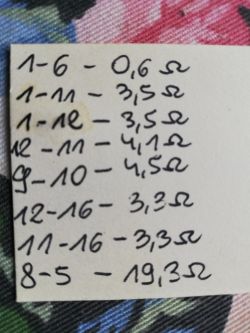 1-6 - 0,6 Ω
1-11 - 3,5 Ω
1-12 - 3,5 Ω
12-11 - 4,1 Ω
9-10 - 4,5 Ω
12-16 - 3,3 Ω
11-16 - 3,3 Ω
8-5 - 19,3 Ω